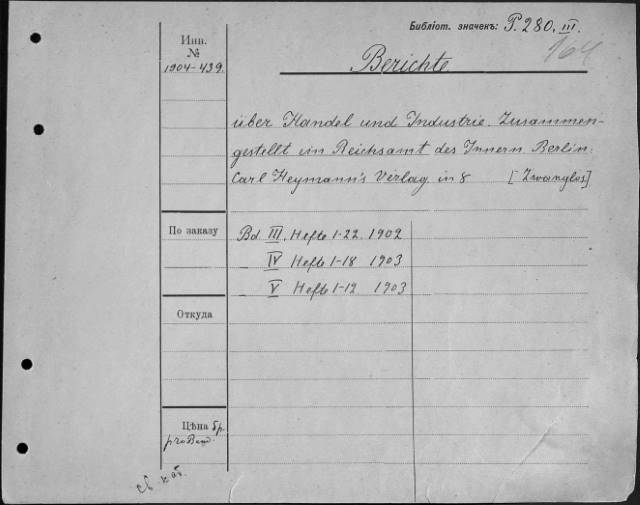 Библіот. значекъ: P. 280. III.
164
Инв.
№
1904-439.
Berichte
über Handel und Industrie. Zusammen-
gestellt im Reichsamt des Innern Berlin.
Carl Heymann's Verlag in 8 [Zwanglos]
По заказу
Bd. III. Hefte 1-22. 1902
IV Hefte 1-18 1903
V Hefte 1-12 1903
Откуда
Цѣна бр.
pro Band.